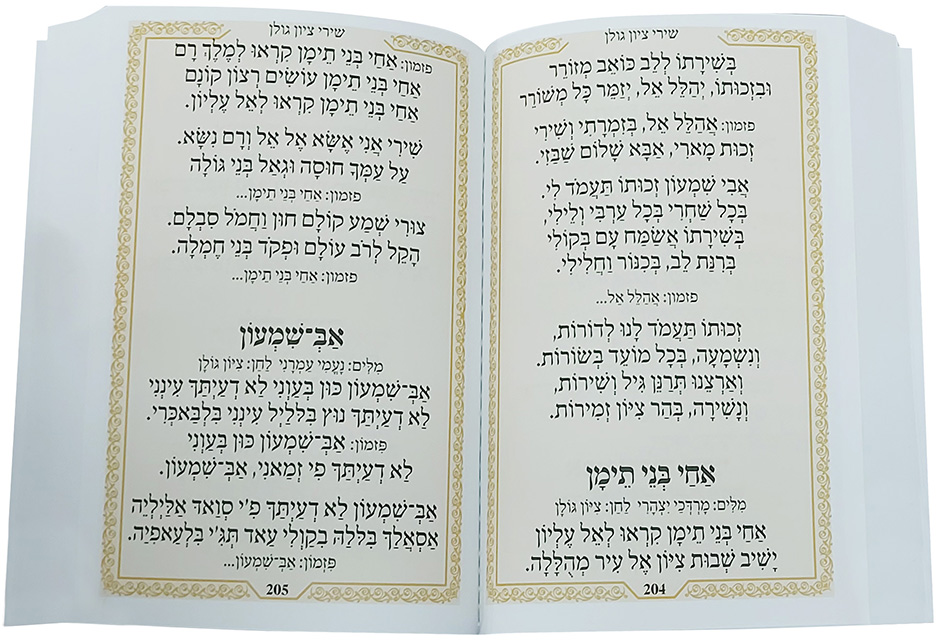 שירי ציון גולן
בְּשִׁירָתוֹ לְלֵב כּוֹאֵב מְזוֹרֵר
וּבִזְכוּתוֹ, יְהַלֵּל אֵל, יְזַמֵּר כָּל מְשׁוֹרֵר
פזמון: אֲהַלֵּל אֵל, בְּזִמְרָתִי וְשִׁירִי
זְכוּת מָארִי, אַבָּא שָׁלוֹם שַׁבַּזִּי.
אֲבִי שִׁמְעוֹן זְכוּתוֹ תַּעֲמֹד לִי.
בְּכָל שַׁחְרִי בְּכָל עַרְבִּי וְלֵילִי,
בְּשִׁירָתוֹ אֶשְׂמַח עָם בְּקוֹלִי
בְּרִנַּת לֵב, בְּכִנּוֹר וַחֲלִילִי.
פזמון: אֲהַלֵּל אֵל...
זְכוּתוֹ תַּעֲמֹד לָנוּ לְדוֹרוֹת,
וְנִשְׁמָעָה, בְּכָל מוֹעֵד בְּשׂוֹרוֹת.
וְאַרְצֵנוּ תְּרַנֵּן גִּיל וְשִׁירוֹת,
וְנָשִׁירָה, בְּהַר צִיּוֹן זְמִירוֹת.
אַחַי בְּנֵי תֵימָן
מִלִּים: מָרְדְּכַי יִצְהָרִי לַחַן: צִיּוֹן גּוֹלָן
אַחַי בְּנֵי תֵימָן קִרְאוּ לְאֵל עֶלְיוֹן
יָשִׁיב שְׁבוּת צִיּוֹן אֶל עִיר מְהֻלָּלָה.
204
שירי ציון גולן
פזמון: אַחַי בְּנֵי תֵימָן קִרְאוּ לְמֶלֶךְ רָם
אַחַי בְּנֵי תֵימָן עוֹשִׂים רְצוֹן קוֹנָם
אַחַי בְּנֵי תֵימָן קִרְאוּ לְאֵל עֶלְיוֹן.
שִׁירִי אֲנִי אֶשָּׂא אֶל אֵל וְרָם נִשָּׂא.
עַל עַמְּךָ חוּסָה וּגְאַל בְּנֵי גוֹלָה
פזמון: אַחַי בְּנֵי תֵימָן...
צוּרִי שְׁמַע קוֹלָם חוּן וַחֲמֹל סִבְלָם.
הָקֵל לְרֹב עוּלָם וּפְקֹד בְּנֵי חֶמְלָה.
פזמון: אַחַי בְּנֵי תֵימָן...
אַבְּ־שִׁמְעוֹן
מִלִּים: נָעֳמִי עַמְרָנִי לַחַן: צִיּוֹן גּוֹלָן
אַבְּ־שִׁמְעוֹן כּוּן בְּעַוְנִי לֹא דְעַיְתַּךְ עֵינַנִי
לֹא דְעַיְתַּךְ נוּץ בִּלְּלֵיל עִינְנִי בִּלְּבַאכְּרִי.
פִּזְמוֹן: אַבְּ־שִׁמְעוֹן כּוּן בְּעַוְנִי
לֹא דְעַיְתַּךְ פִי זְמַאנִי, אַבְּ־שִׁמְעוֹן.
אַבְּ־שִׁמְעוֹן לֹא דְעַיְתַּךְ פִ׳י סְוַאדַ אלְּיְלִיֶה
אַסְאֲלַךְ בִּלְלַהּ בְקַוְלִי עַאד תְּגִ׳י בִּלְעַאפִיַה.
פִּזְמוֹן: אַבְּ־שִׁמְעוֹן...
205